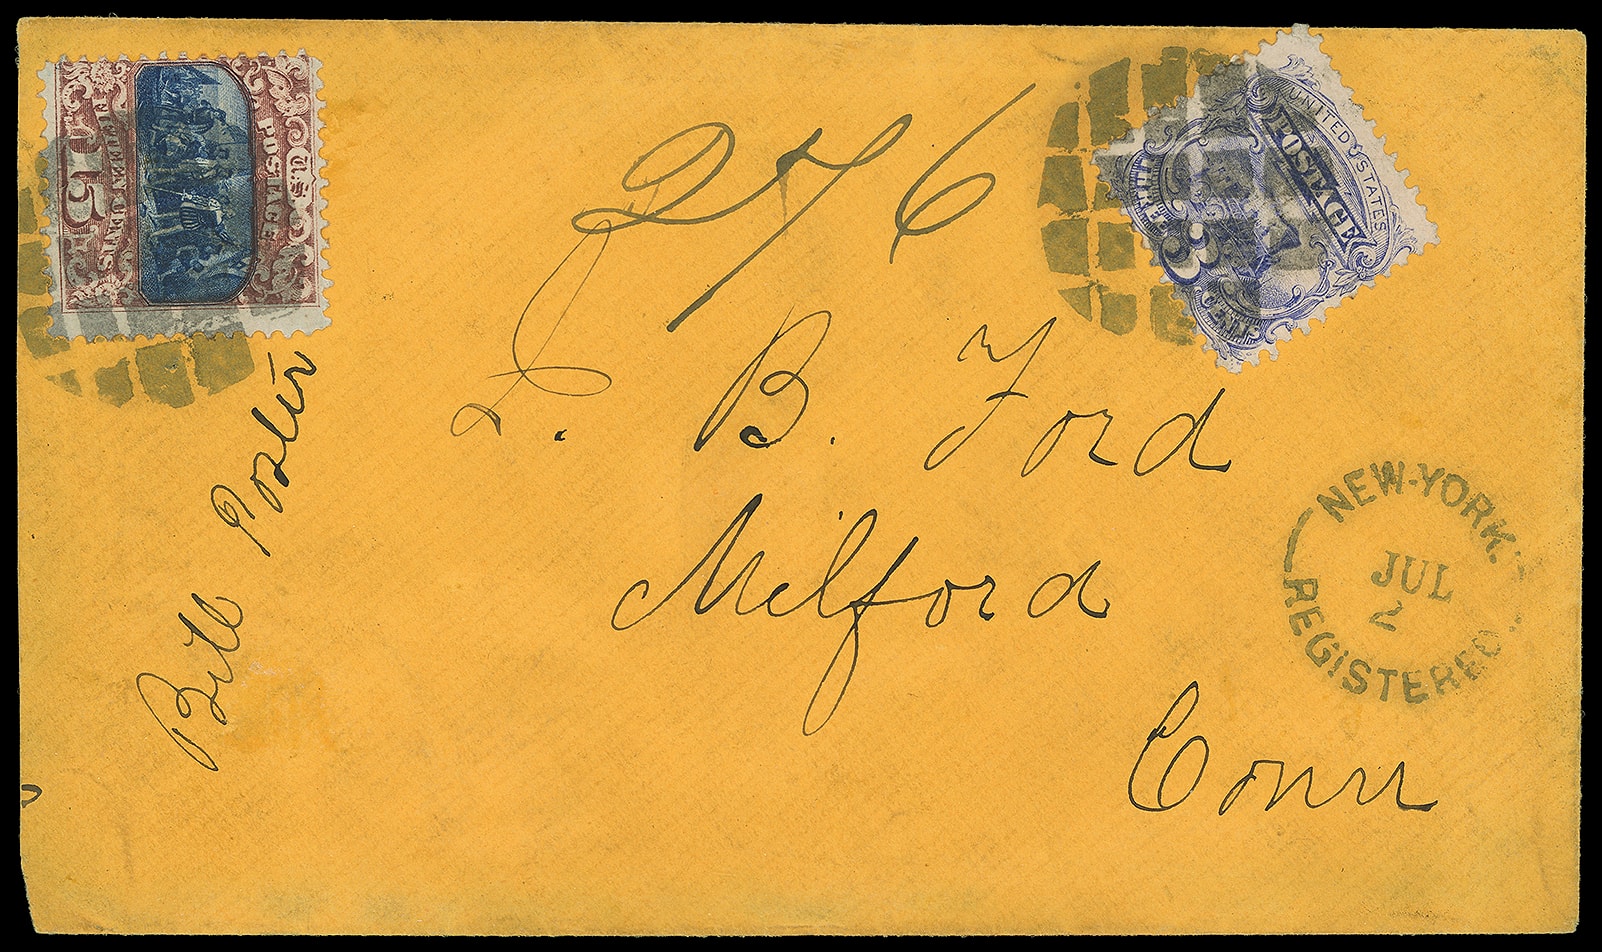 U.S.
POSTAGE
FIFTEEN CENTS
15
UNITED STATES
POSTAGE
3
CENTS
276
L. B. Ford
Milford
Conn
Bill Poster
NEW-YORK.
JUL
2
REGISTERED.